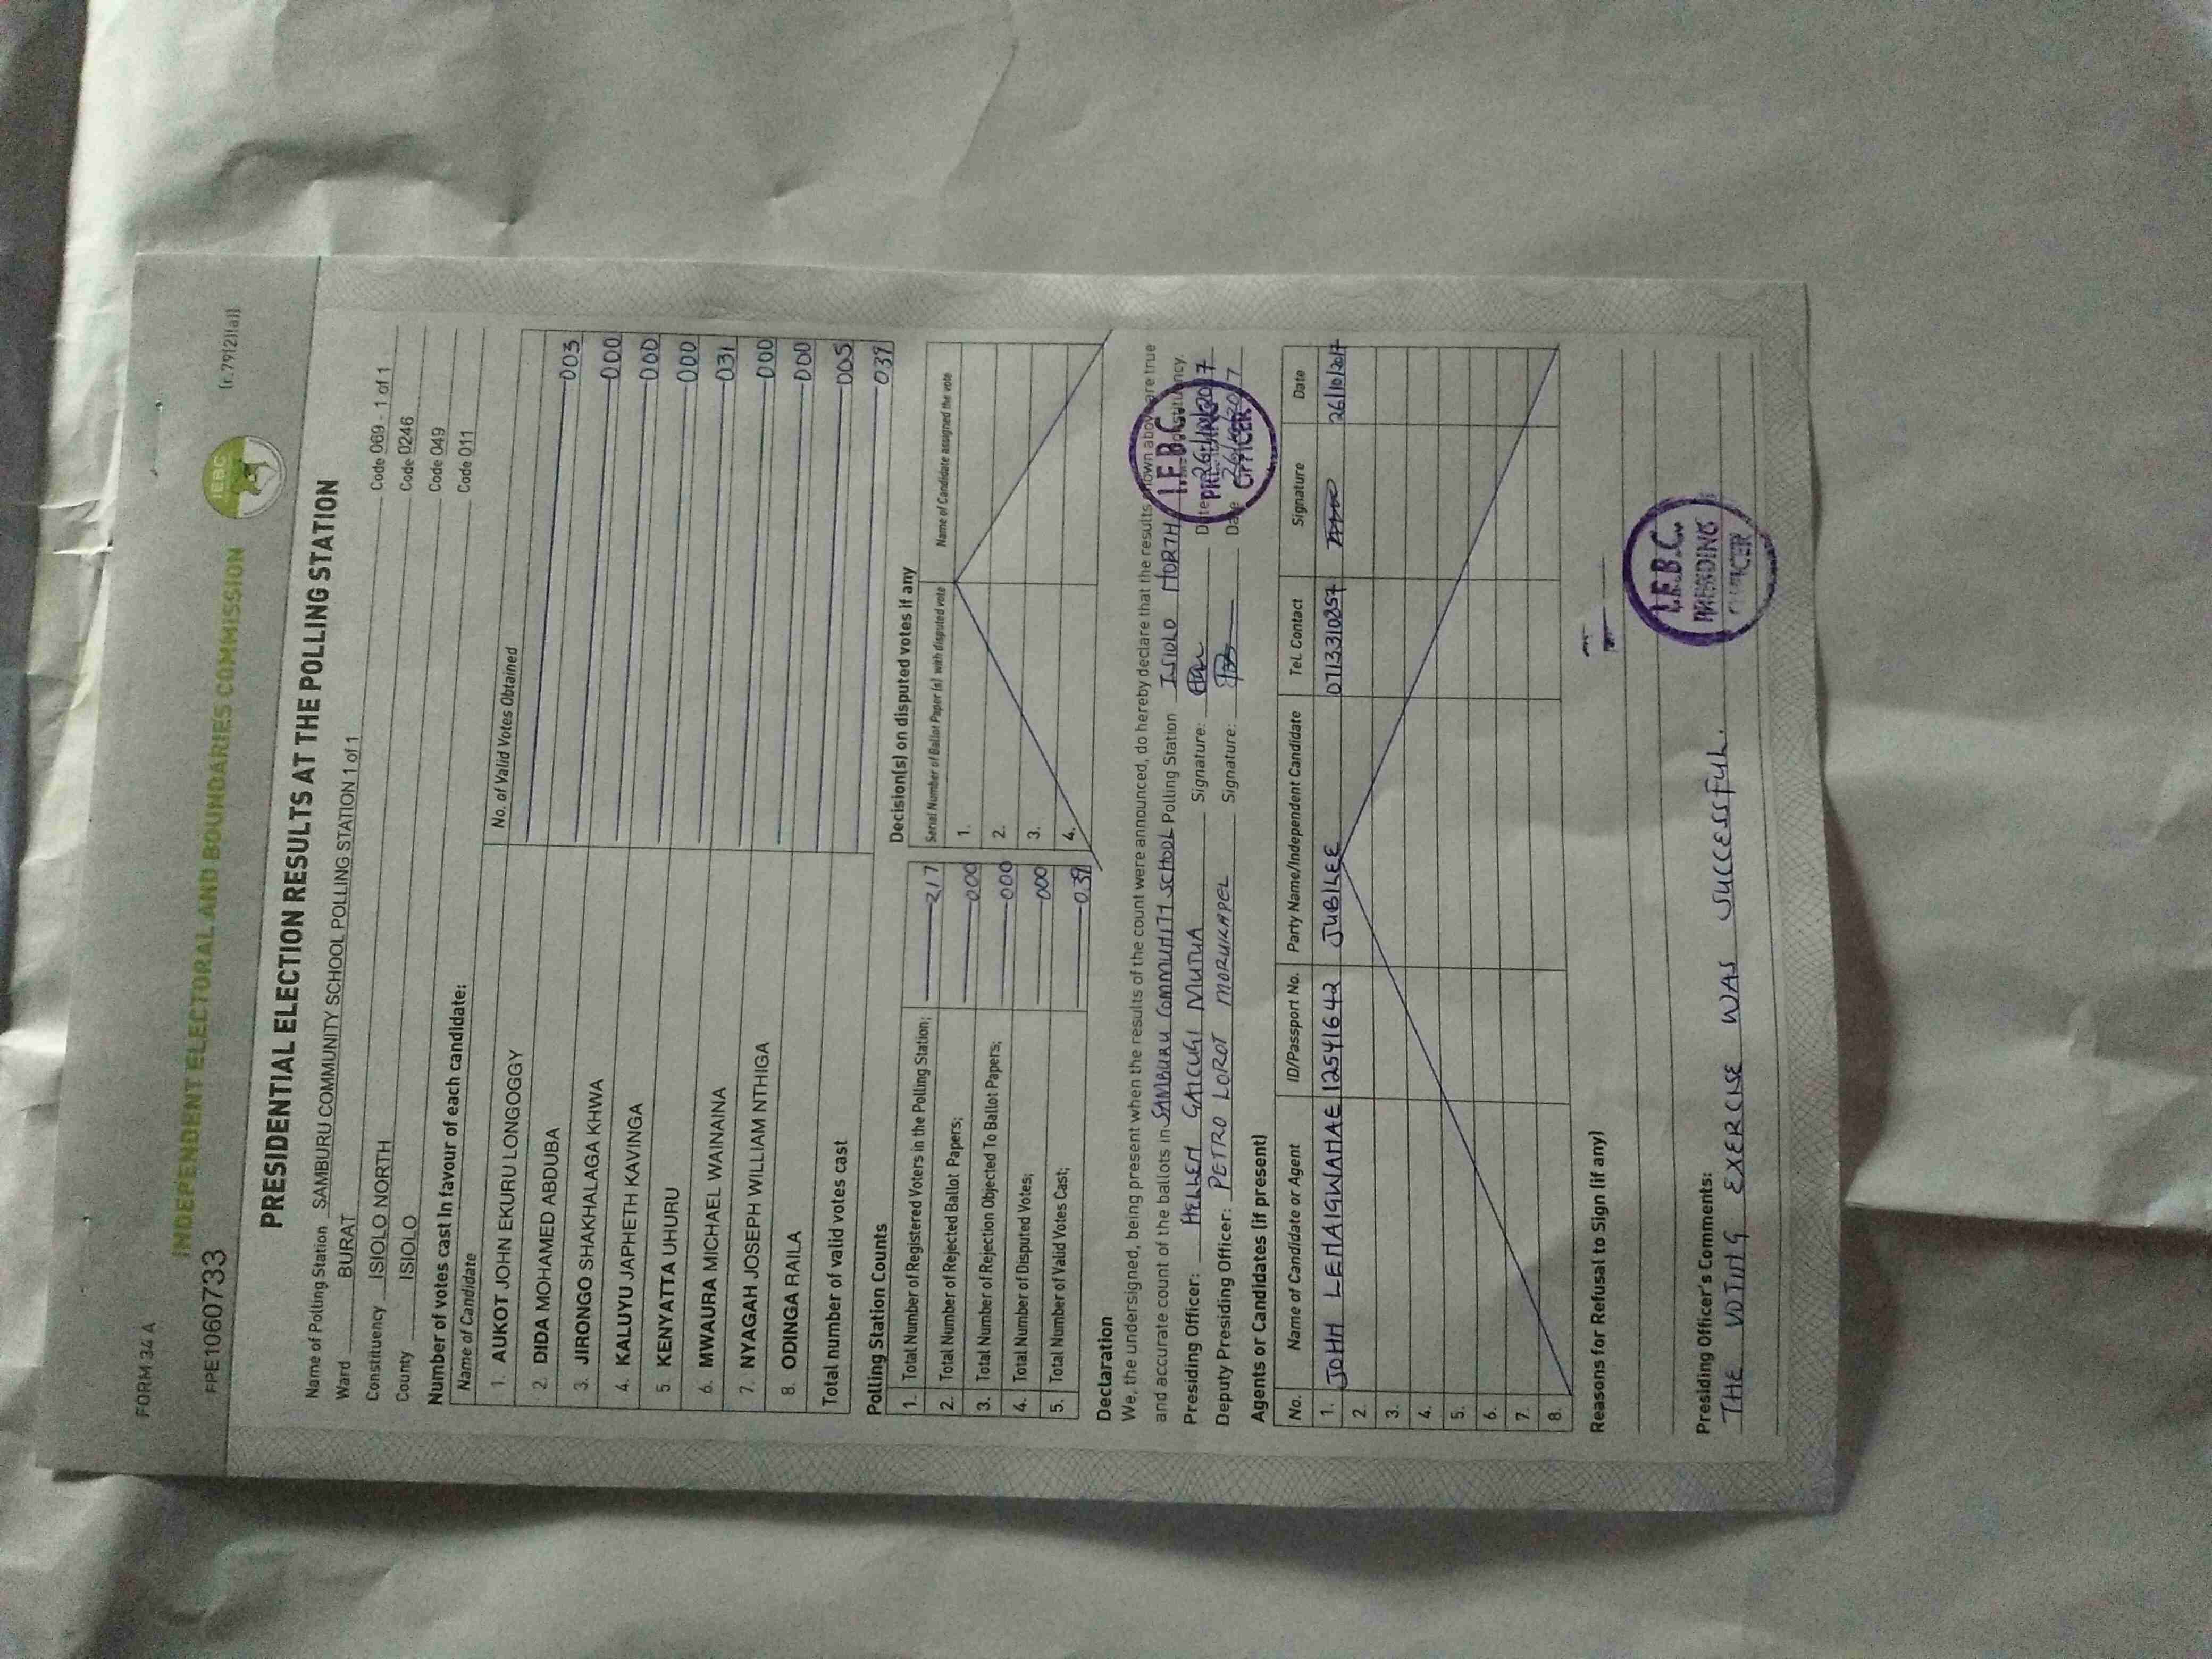 FORM 34 A
INDEPENDENT ELECTORAL AND BOUNDARIES COMMISSION
IEBC
PPE1060733
(r.79(2)(a))
PRESIDENTIAL ELECTION RESULTS AT THE POLLING STATION
Name of Polling Station SAMBURU COMMUNITY SCHOOL POLLING STATION 1 of 1 Code 069 - 1 of 1
Ward BURAT Code 0246
Constituency ISIOLO NORTH Code 049
County ISIOLO Code 011
Number of votes cast in favour of each candidate:
Name of Candidate No. of Valid Votes Obtained
1. AUKOT JOHN EKURU LONGOGGY 003
2. DIDA MOHAMED ABDUBA 000
3. JIRONGO SHAKHALAGA KHWA 000
4. KALUYU JAPHETH KAVINGA 000
5 KENYATTA UHURU 031
6. MWAURA MICHAEL WAINAINA 000
7. NYAGAH JOSEPH WILLIAM NTHIGA 000
8. ODINGA RAILA 005
Total number of valid votes cast 039
Polling Station Counts
1. Total Number of Registered Voters in the Polling Station; 217
2. Total Number of Rejected Ballot Papers; 000
3. Total Number of Rejection Objected To Ballot Papers; 000
4. Total Number of Disputed Votes; 000
5. Total Number of Valid Votes Cast; 039
Decision(s) on disputed votes if any
Serial Number of Ballot Paper (s) with disputed vote Name of Candidate assigned the vote
1.
2.
3.
4.
Declaration
We, the undersigned, being present when the results of the count were announced, do hereby declare that the results shown above are true
and accurate count of the ballots in SAMBURU COMMUNITY SCHOOL Polling Station ISIOLO NORTH Constituency.
Presiding Officer: HELLEN GAICUGI MUTUA Signature: Date 26/10/2017
Deputy Presiding Officer: PETRO LOROT MORUKAPEL Signature: Date 26/10/2017
I.E.B.C.
PRESIDING
OFFICER
Agents or Candidates (if present)
No. Name of Candidate or Agent ID/Passport No. Party Name/Independent Candidate Tel. Contact Signature Date
1. JOHN LENAIGWANAE 12541642 JUBILEE 0713310257 26/10/2017
2.
3.
4.
5.
6.
7.
8.
Reasons for Refusal to Sign (if any)
Presiding Officer's Comments:
THE VOTING EXERCISE WAS SUCCESSFUL.
I.E.B.C.
PRESIDING
OFFICER